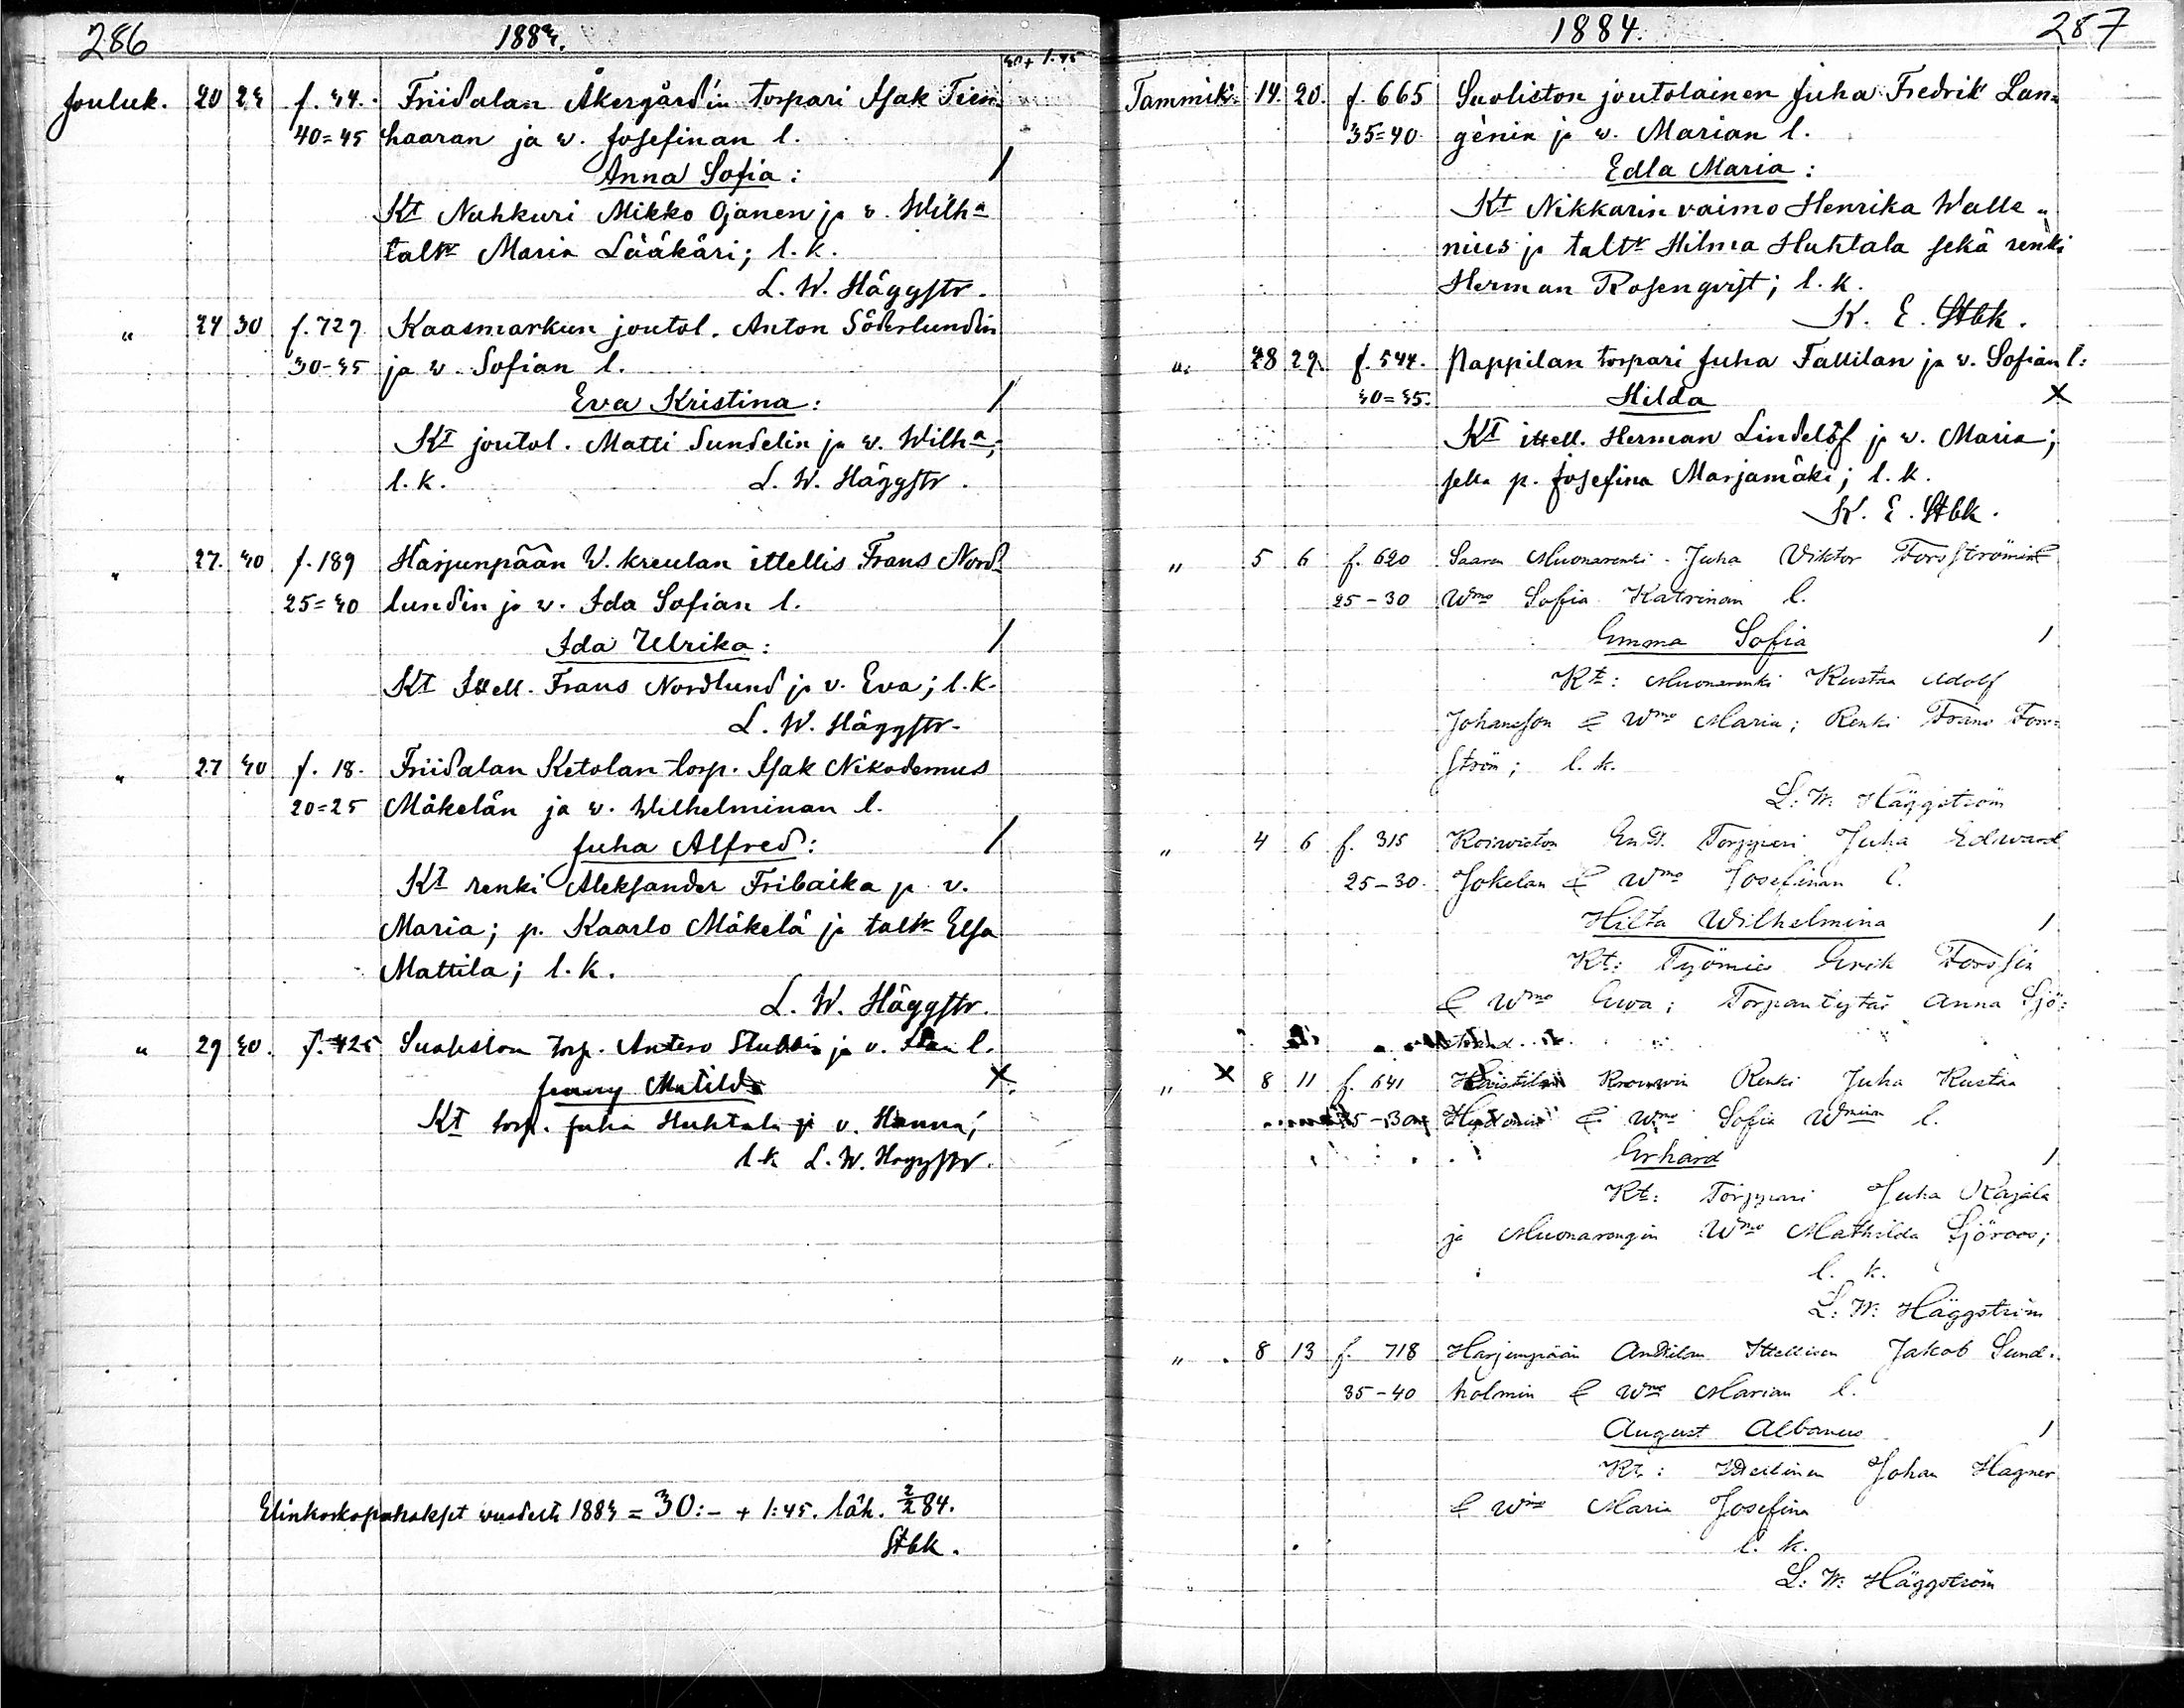 286
1883.
30+ 1.45
Jouluk. 20 23 f. 44. Friidalan Åkergård'in torpari Isak Tien-
40=45 haaran ja v. Josefinan l.
Anna Sofia: /
Kt Nahkuri Mikko Ojanen ja v. Wilha
taltr Maria Lääkäri; l. k.
L. W. Häggstr.
" 24 30 f. 729. Kaasmarkun joutol. Anton Söderlundin
30-35 ja v. Sofian l.
Eva Kristina: /
Kt joutol. Matti Sundelin ja v. Wilha;
l. k. L. W. Häggstr.
" 27. 30 f. 189 Harjunpään W. kreulan ittellis Frans Nord-
25=30 lundin ja v. Ida Sofian l.
Ida Ulrika: /
Kt Ittell. Frans Nordlund ja v. Eva; l. k.
L. W. Häggstr.
" 27 30 f. 18. Friidalan Ketolan torp. Isak Nikodemus
20=25 Mäkelän ja v. Wilhelminan l.
Juha Alfred: /
Kt renki Aleksander Fribaika ja v.
Maria; p. Kaarlo Mäkelä ja taltr Elsa
Mattila; l. k.
L. W. Häggstr.
" 29 30. f. 425 torp. Antero ja v. l.
Jenny Matilda X.
Kt torp. Juha Huhtala ja v. Hanna;
l. k L. W. Häggstr.
vuodelta 1883 = 30:- + 1:45. läh. 2/2 84.
Stbk.
1884.
287
Tammik. 14 20. f. 665 Suoliston joutolainen Juha Fredrik Lan-
35=40. génin ja v. Marian l.
Edla Maria:
Kt Nikkarin vaimo Henrika Walle-
nius ja taltr Hilma Huhtala sekä renki
Herman Rosenqvist; l. k.
K. E. Stbk.
" 28 29. f. 544. Pappilan torpari Juha Tallilan ja v. Sofian l:
30=35. Hilda X
Kt ittell. Herman Lindelöf ja v. Maria;
sekä p. Josefina Marjamäki; l. k.
K. E. Stbk.
" 5 6 f. 620 Saaren Muonarenki Juha Viktor Forsströmin &
25-30 Wmo Sofia Katrinan l.
Emma Sofia /
Kt: Muonarenki Kustaa Adolf
Johansson & Wmo Maria; Renki Frans Fors-
ström; l. k.
L. W. Häggström
" 4 6 f. 315 Koiviston Torppari Juha Edward
25-30. Jokelan & Wmo Josefinan l.
Hilta Wilhelmina /
Kt: Työmies Erik Forssén
& Wmo Ewa; Torpantytär Anna Sjö-
" X 8 11 f. 641 Renki Juha Kustaa
& Wmo Sofia Wminan l.
Erhard /
Kt: Torppari Juha Rajala
ja Muonarengin Wmo Mathilda Sjöroos;
l. k.
L. W. Häggström
" 8 13 f. 718 Harjunpään Anttilan Ittellisen Jakob Sund-
35-40 holmin & Wmo Marian l.
August Albanus /
Kt: Ittellinen Johan Hagner
& Wmo Maria Josefina
l. k.
L. W. Häggström